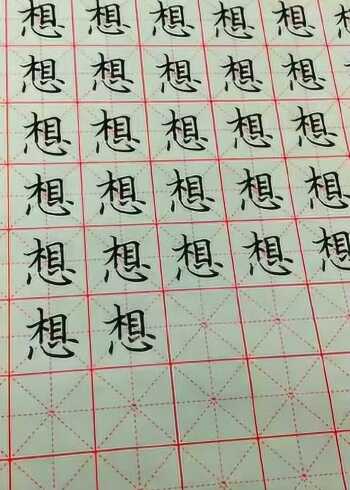 想想想想想
想想想想想
想想想想想
想想想想想
想想想想想
想想